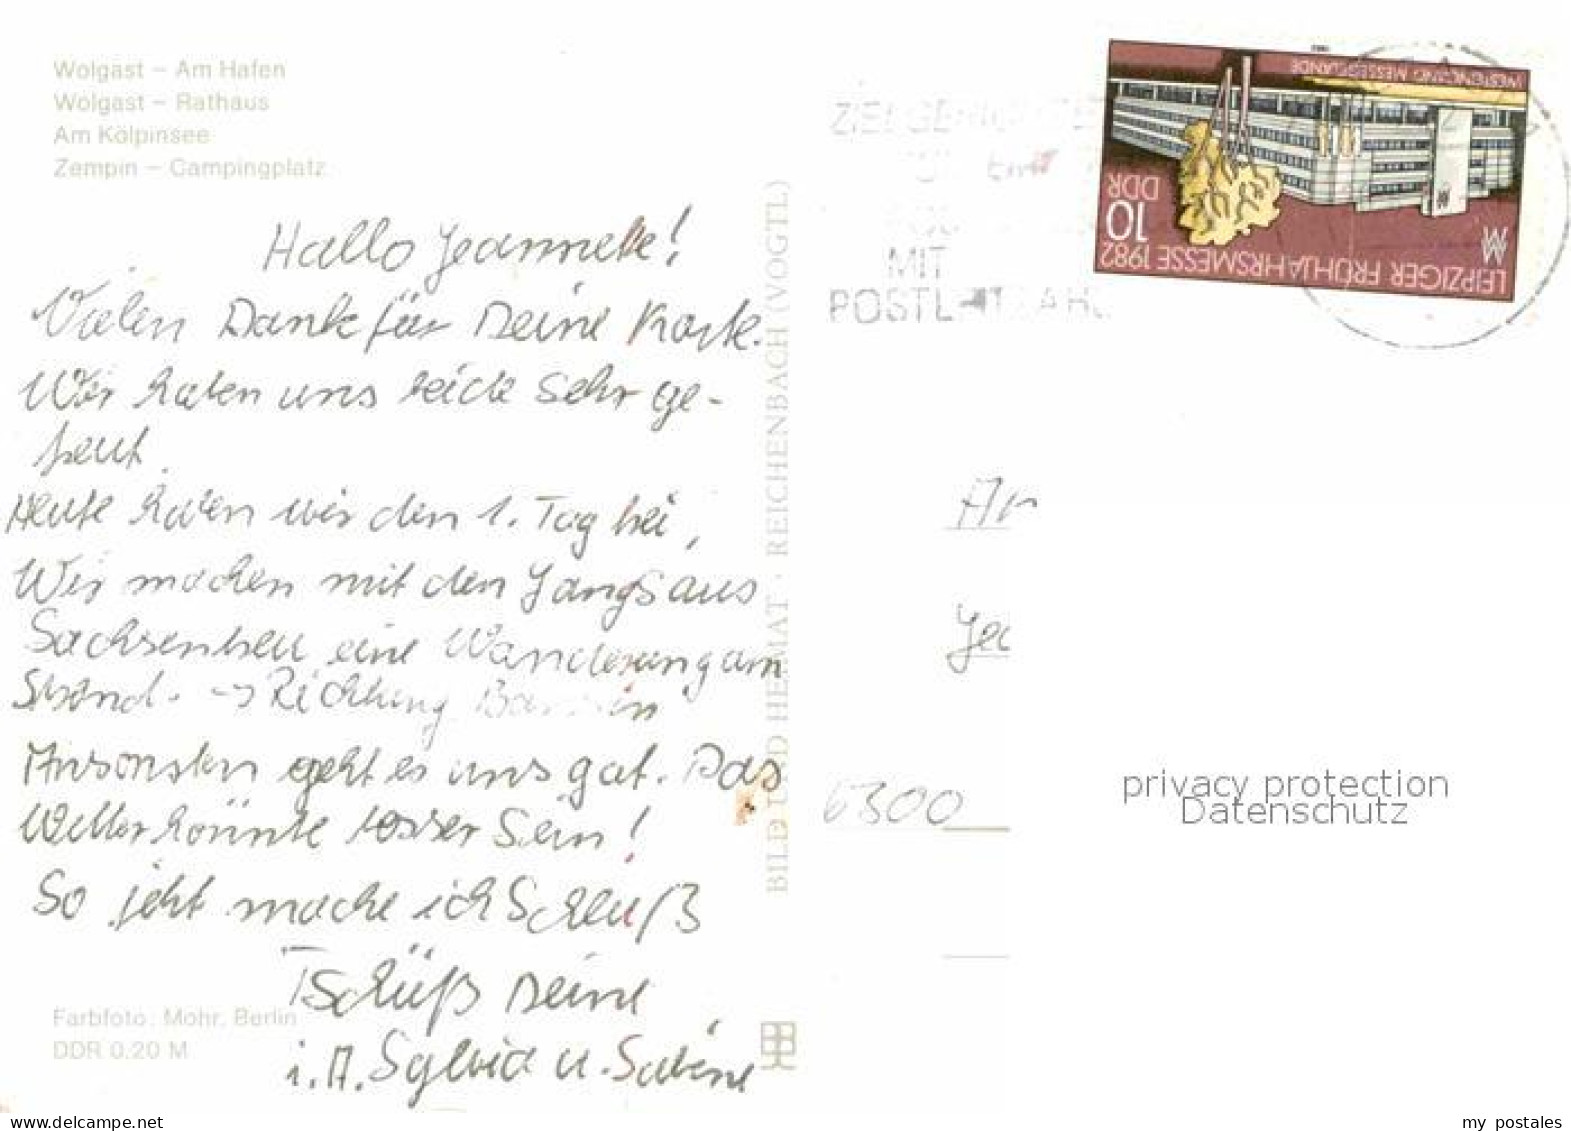 Wolgast – Am Hafen
Wolgast – Rathaus
Am Kölpinsee
Zempin – Campingplatz
Hallo Jeannette!
Vielen Dank für Deine Karte.
Wir haben uns beide sehr ge-
freut.
Heute haben wir den 1. Tag frei,
Wir machen mit den Jungs aus
eine Wanderung am
Strand. -> Richtung Bansin
Ansonsten geht es uns gut. Das
Wetter könnte besser sein!
So jetzt mache ich Schluß
Tschüß Deine
i.A. Sylvia u. Sabine
Farbfoto: Mohr, Berlin
DDR 0.20 M
BILD UND HEIMAT · REICHENBACH (VOGTL)
MIT
POSTLEITZAHL
WESTEINGANG MESSEGELÄNDE
10
DDR
LEIPZIGER FRÜHJAHRSMESSE 1982
An
Jea
6300
privacy protection
Datenschutz
www.oldthing.de
my_postales